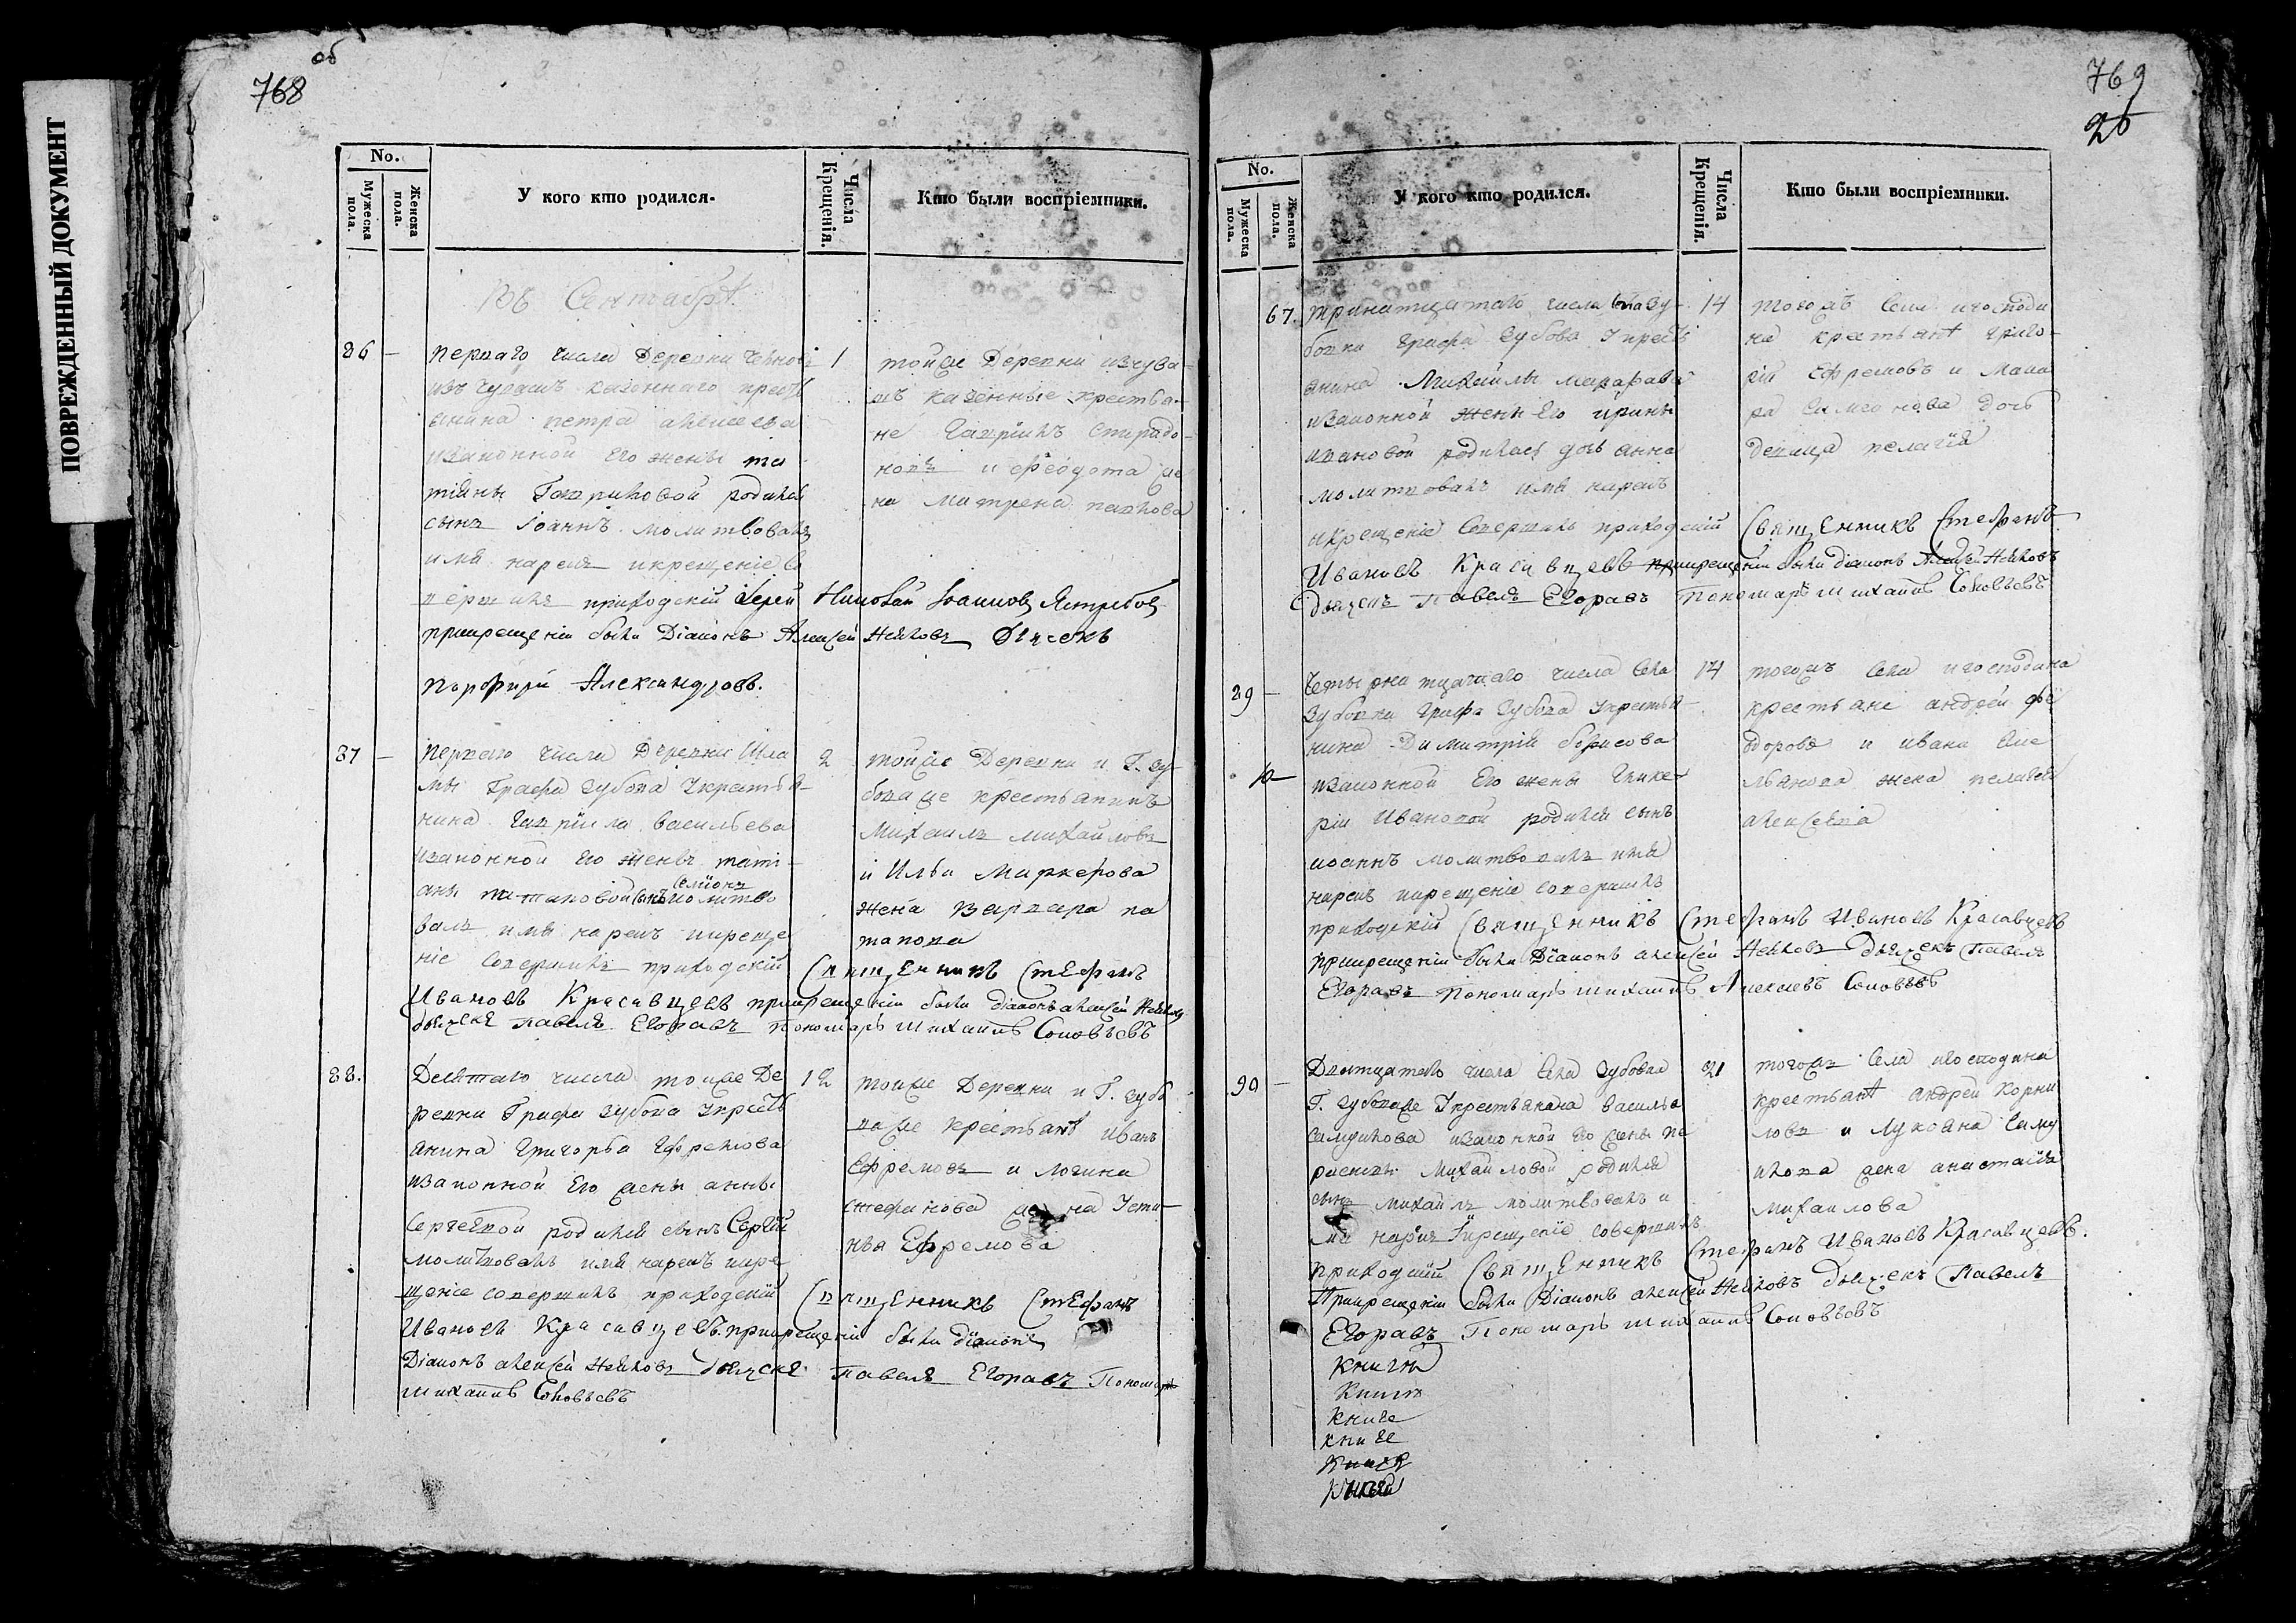 ПОВРЕЖДЕННЫЙ ДОКУМЕНТ
об
768
No.
Мужеска пола.
Женска пола.
У кого кто родился.
Числа Крещенія.
Кто были воспріемники.
Въ Сентябрѣ
86 — перваго числа Деревни
изъ чувашъ казеннаго кресть
янина петра алексеева
изаконной его жены та
тіяны Гавриловой родился
сынъ Іоаннъ молитвовалъ
имя нарекъ икрещеніе со
вершилъ приходскій Іерей Николай Іоанновъ Ястребовъ
прикрещеніи были Діаконъ Алексей Дьячекъ
Порфирій Александровъ.
1
тойже Деревни изчува
шъ казенные крестья
не Гаврилъ Спиридо
новъ и феодота же
на матрена павлова
87 — перваго числа Деревни Шла
мы Графа Зубова Укрестья
нина Гаврила васильева
изаконной его жены тати
аны потаповой сынъ Семіонъ молитво
валъ имя нарекъ икреще
ніе совершилъ приходскій Священникъ Стефанъ
Ивановъ Красавцевъ прикрещеніи были діаконъ алексей
дьячекъ павелъ Егоравъ пономарь михаилъ Соловьевъ
2
тойже Деревни и Г. Зу
боваже крестьянинъ
Михаилъ михайловъ
и Илья Маркерова
жена варвара по
тапова
88. Десятаго числа тойже Де
ревни Графа Зубова Укресть
янина Григорья Ефремова
изаконной Его жены анны
Сергеевой родился сынъ Сергій
молитвовалъ имя нарекъ икре
щеніе совершилъ приходскій Священникъ Стефанъ
Ивановъ Красавцевъ. прикрещеніи были діаконъ
Діаконъ алексей дьячекъ павелъ Егоравъ Пономарь
михаилъ Соловьевъ
12
тойже Деревни и Г. Зубо
важе крестьянѣ иванъ
Ефремовъ и логина
стефанова жена Усти
нья Ефремова
769
26
No.
Мужеска пола.
Женска пола.
У кого кто родился.
Числа Крещенія.
Кто были воспріемники.
67. тринатцатаго числа села Зу
бовки графа Зубова Укресть
янина Михайлы макарова
изаконной жены Его ирины
ивановой родилась дочь анна
молитвовалъ имя нарекъ
икрещеніе Совершилъ приходскій Священникъ Стефанъ
Ивановъ Красавцевъ прикрещеніи были діаконъ Алексей
дьячекъ Павелъ Егоравъ Пономарь михаилъ Соловьевъ
14
тогожъ Села игосподи
на крестьянѣ григо
рій Ефремовъ и Мака
ра Симіонова дочь
девица пелагія
89 — Четырнатцатаго числа Села
Зубовки графа Зубова Укрестья
нина Димитрій борисова
изаконной Его жены Глике
ріи Ивановой родился сынъ
иоаннъ молитвовалъ имя
нарекъ икрещеніе совершилъ
приходскій Священникъ Стефанъ Ивановъ Красавцевъ
прикрещеніи были Діаконъ алексей дьячекъ Павелъ
Егоравъ пономарь михаилъ Алексеевъ Соловьевъ
14
тогожъ Села игосподина
крестьяне андрей фе
одоровъ и ивана Еме
льянова жена пелагея
алексеева
90 — Дватцатаго числа Села Зубовки
Г. Зубоваже Укрестьянина василья
самуилова изаконной его жены па
расковьи михайловой родился
сынъ михаилъ молитвовалъ и
мя нарекъ икрещеніе совершилъ
приходскій Священникъ Стефанъ Ивановъ Красавцевъ.
Прикрещеніи были Діаконъ алексей дьячекъ Павелъ
Егоравъ Пономарь михаилъ Соловьевъ
21
тогожъ Села игосподина
крестьянѣ андрей Корни
ловъ и Лукояна Саму
илова жена анастасія
михаилова
книги
Книги
книге
книге